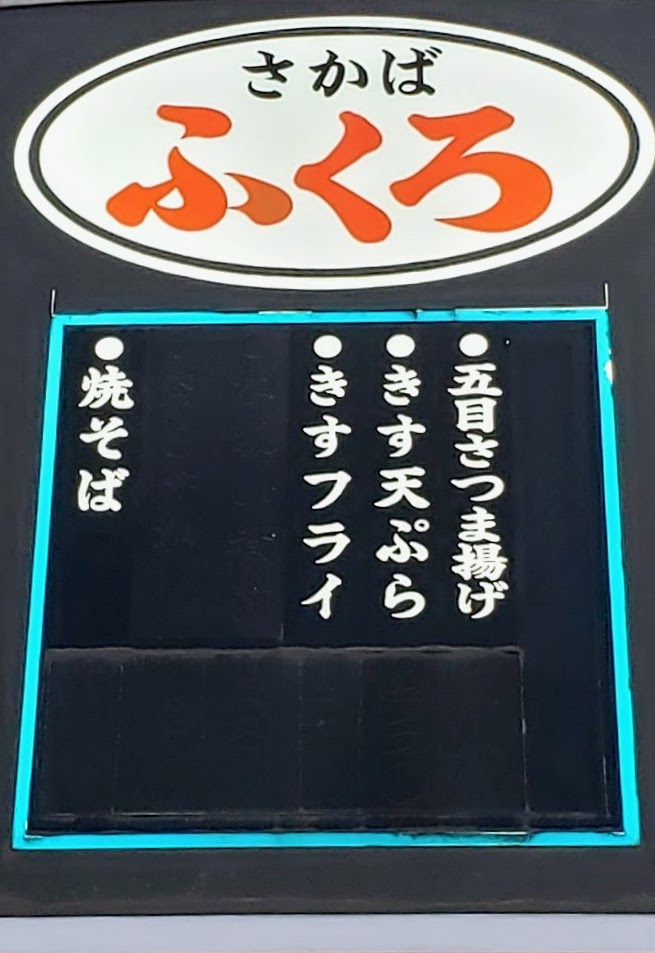 さかば
ふくろ
●五目さつま揚げ
●きす天ぷら
●きすフライ
●焼そば